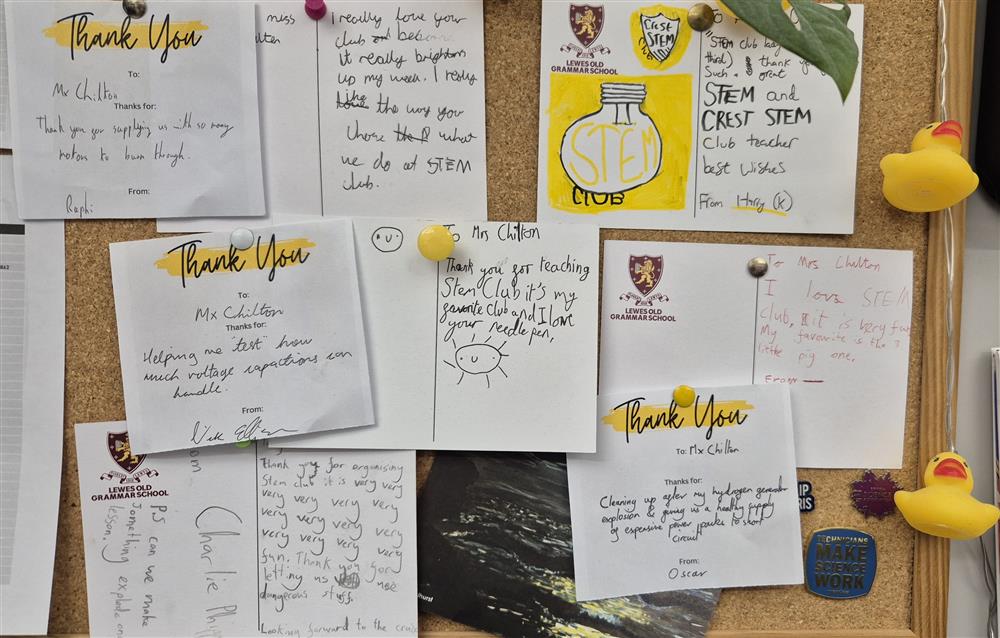 Thank You
To:
Mx Chilton
Thanks for:
Thank you for supplying us with so many
motors to burn through.
From:
Raphi
miss
I really love your
club
it really brightens
up my week. I really
like the way you
chose what
we do at STEM
club.
LEWES OLD
GRAMMAR SCHOOL
CREST
STEM
STEM
CLUB
STEM club
third) thank you
Such a great
STEM and
CREST STEM
club teacher
best wishes
From Harry (K)
Thank You
To:
Mx Chilton
Thanks for:
Helping me 'test' how
much voltage capacitors can
handle.
From:
To Mrs Chilton
Thank you for teaching
Stem Club it's my
favorite club and I love
your needle pen,
LEWES OLD
GRAMMAR SCHOOL
To Mrs Chilton
I love STEM
club, it is very fun
My favourite is the 3
little pig one.
From
Thank You
To: Mx Chilton
Thanks for:
Cleaning up after my hydrogen generator
explosion & giving us a healthy supply
of expensive power packs to short
circuit
From:
Oscar
LEWES OLD
GRAMMAR SCHOOL
PS can we make
something explode one
lesson?
From
Charlie
Thank you for organising
Stem club it is very very
very very very very
very very very very
very very very very
very very very very
fun. Thank you for
letting us use
dangerous stuff.
Looking forward to the
TECHNICIANS
MAKE
SCIENCE
WORK